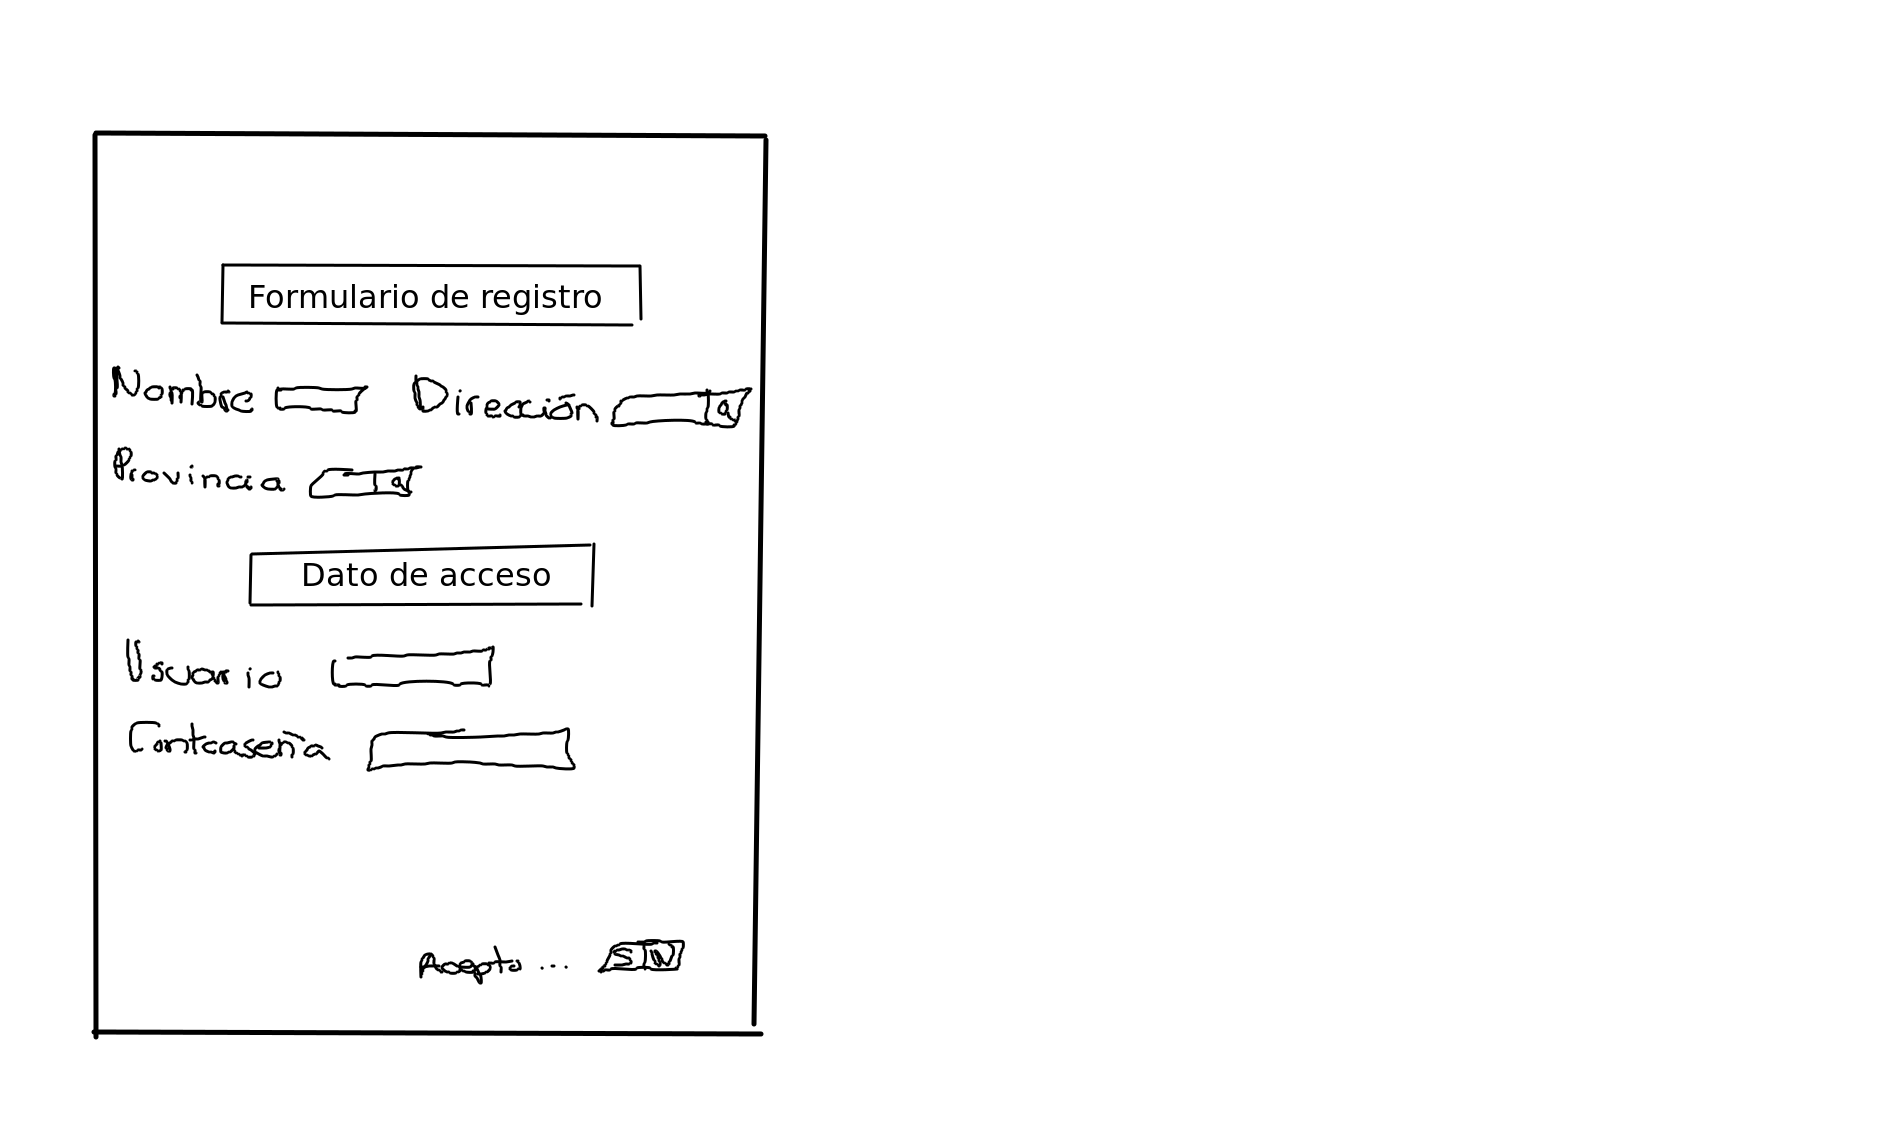 Formulario de registro
Nombre Dirección Q
Provincia Q
Dato de acceso
Usuario
Contraseña
Acepto ... S N